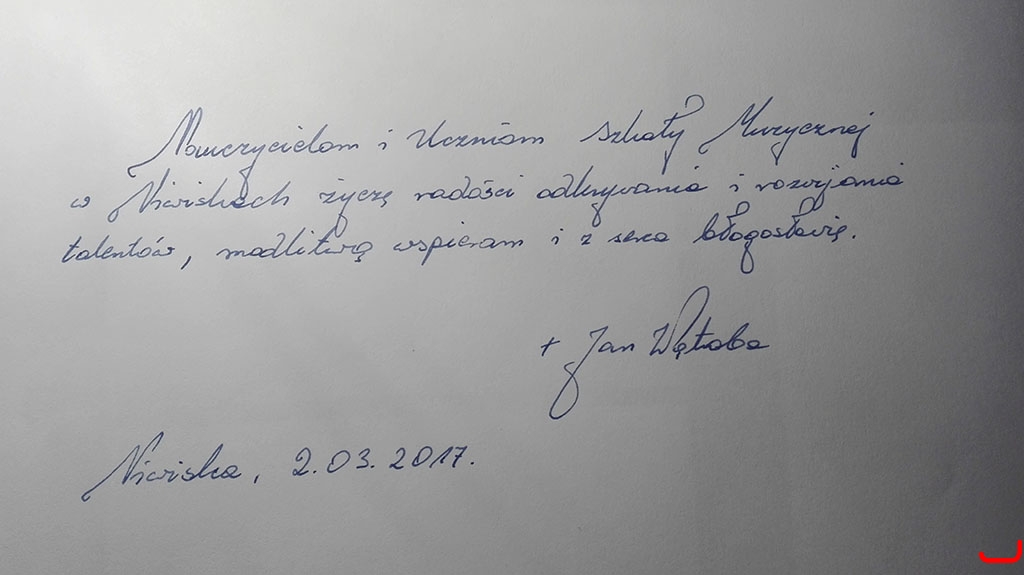 Nauczycielom i Uczniom Szkoły Muzycznej
w Niwiskach życzę radości odkrywania i rozwijania
talentów, modlitwą wspieram i z serca błogosławię.
+ Jan Wątroba
Niwiska, 2.03.2017.